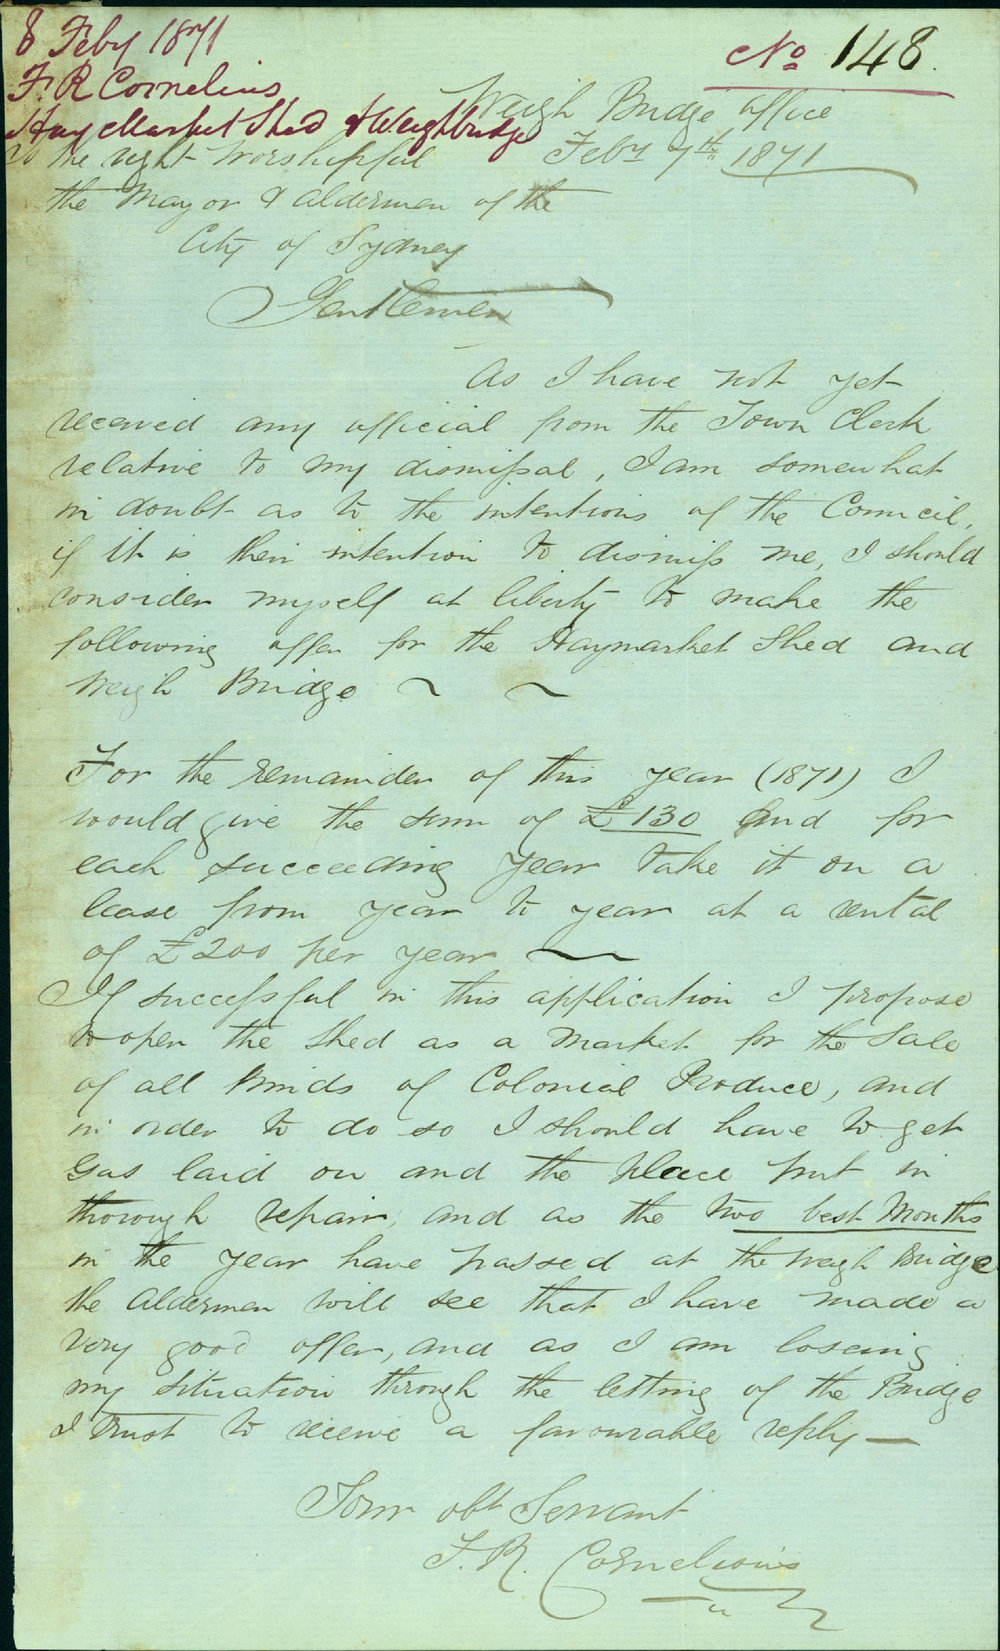 8 Feby 1871
No 148.
F. R Cornelius
Hay Market Shed & Weighbridge
Weigh Bridge office
Feby 7th 1871
To the right Worshipful
the Mayor & Aldermen of the
City of Sydney
Gentlemen
As I have not yet
received any official from the Town Clerk
relative to my dismissal, I am somewhat
in doubt as to the intentions of the Council,
if it is their intention to dismiss me, I should
consider myself at liberty to make the
following offer for the Haymarket Shed and
Weigh Bridge ~ ~
For the remainder of this year (1871) I
would give the sum of £130 and for
each succeeding year take it on a
lease from year to year at a rental
of £200 per year ~
If successful in this application I propose
to open the Shed as a Market for the Sale
of all kinds of Colonial Produce, and
in order to do so I should have to get
Gas laid on and the place put in
thorough repair, and as the two best Months
in the year have passed at the Weigh Bridge
the Aldermen will see that I have made a
very good offer, and as I am loseing
my situation through the letting of the Bridge
I trust to receive a favourable reply —
Your obt Servant
F. R. Cornelius